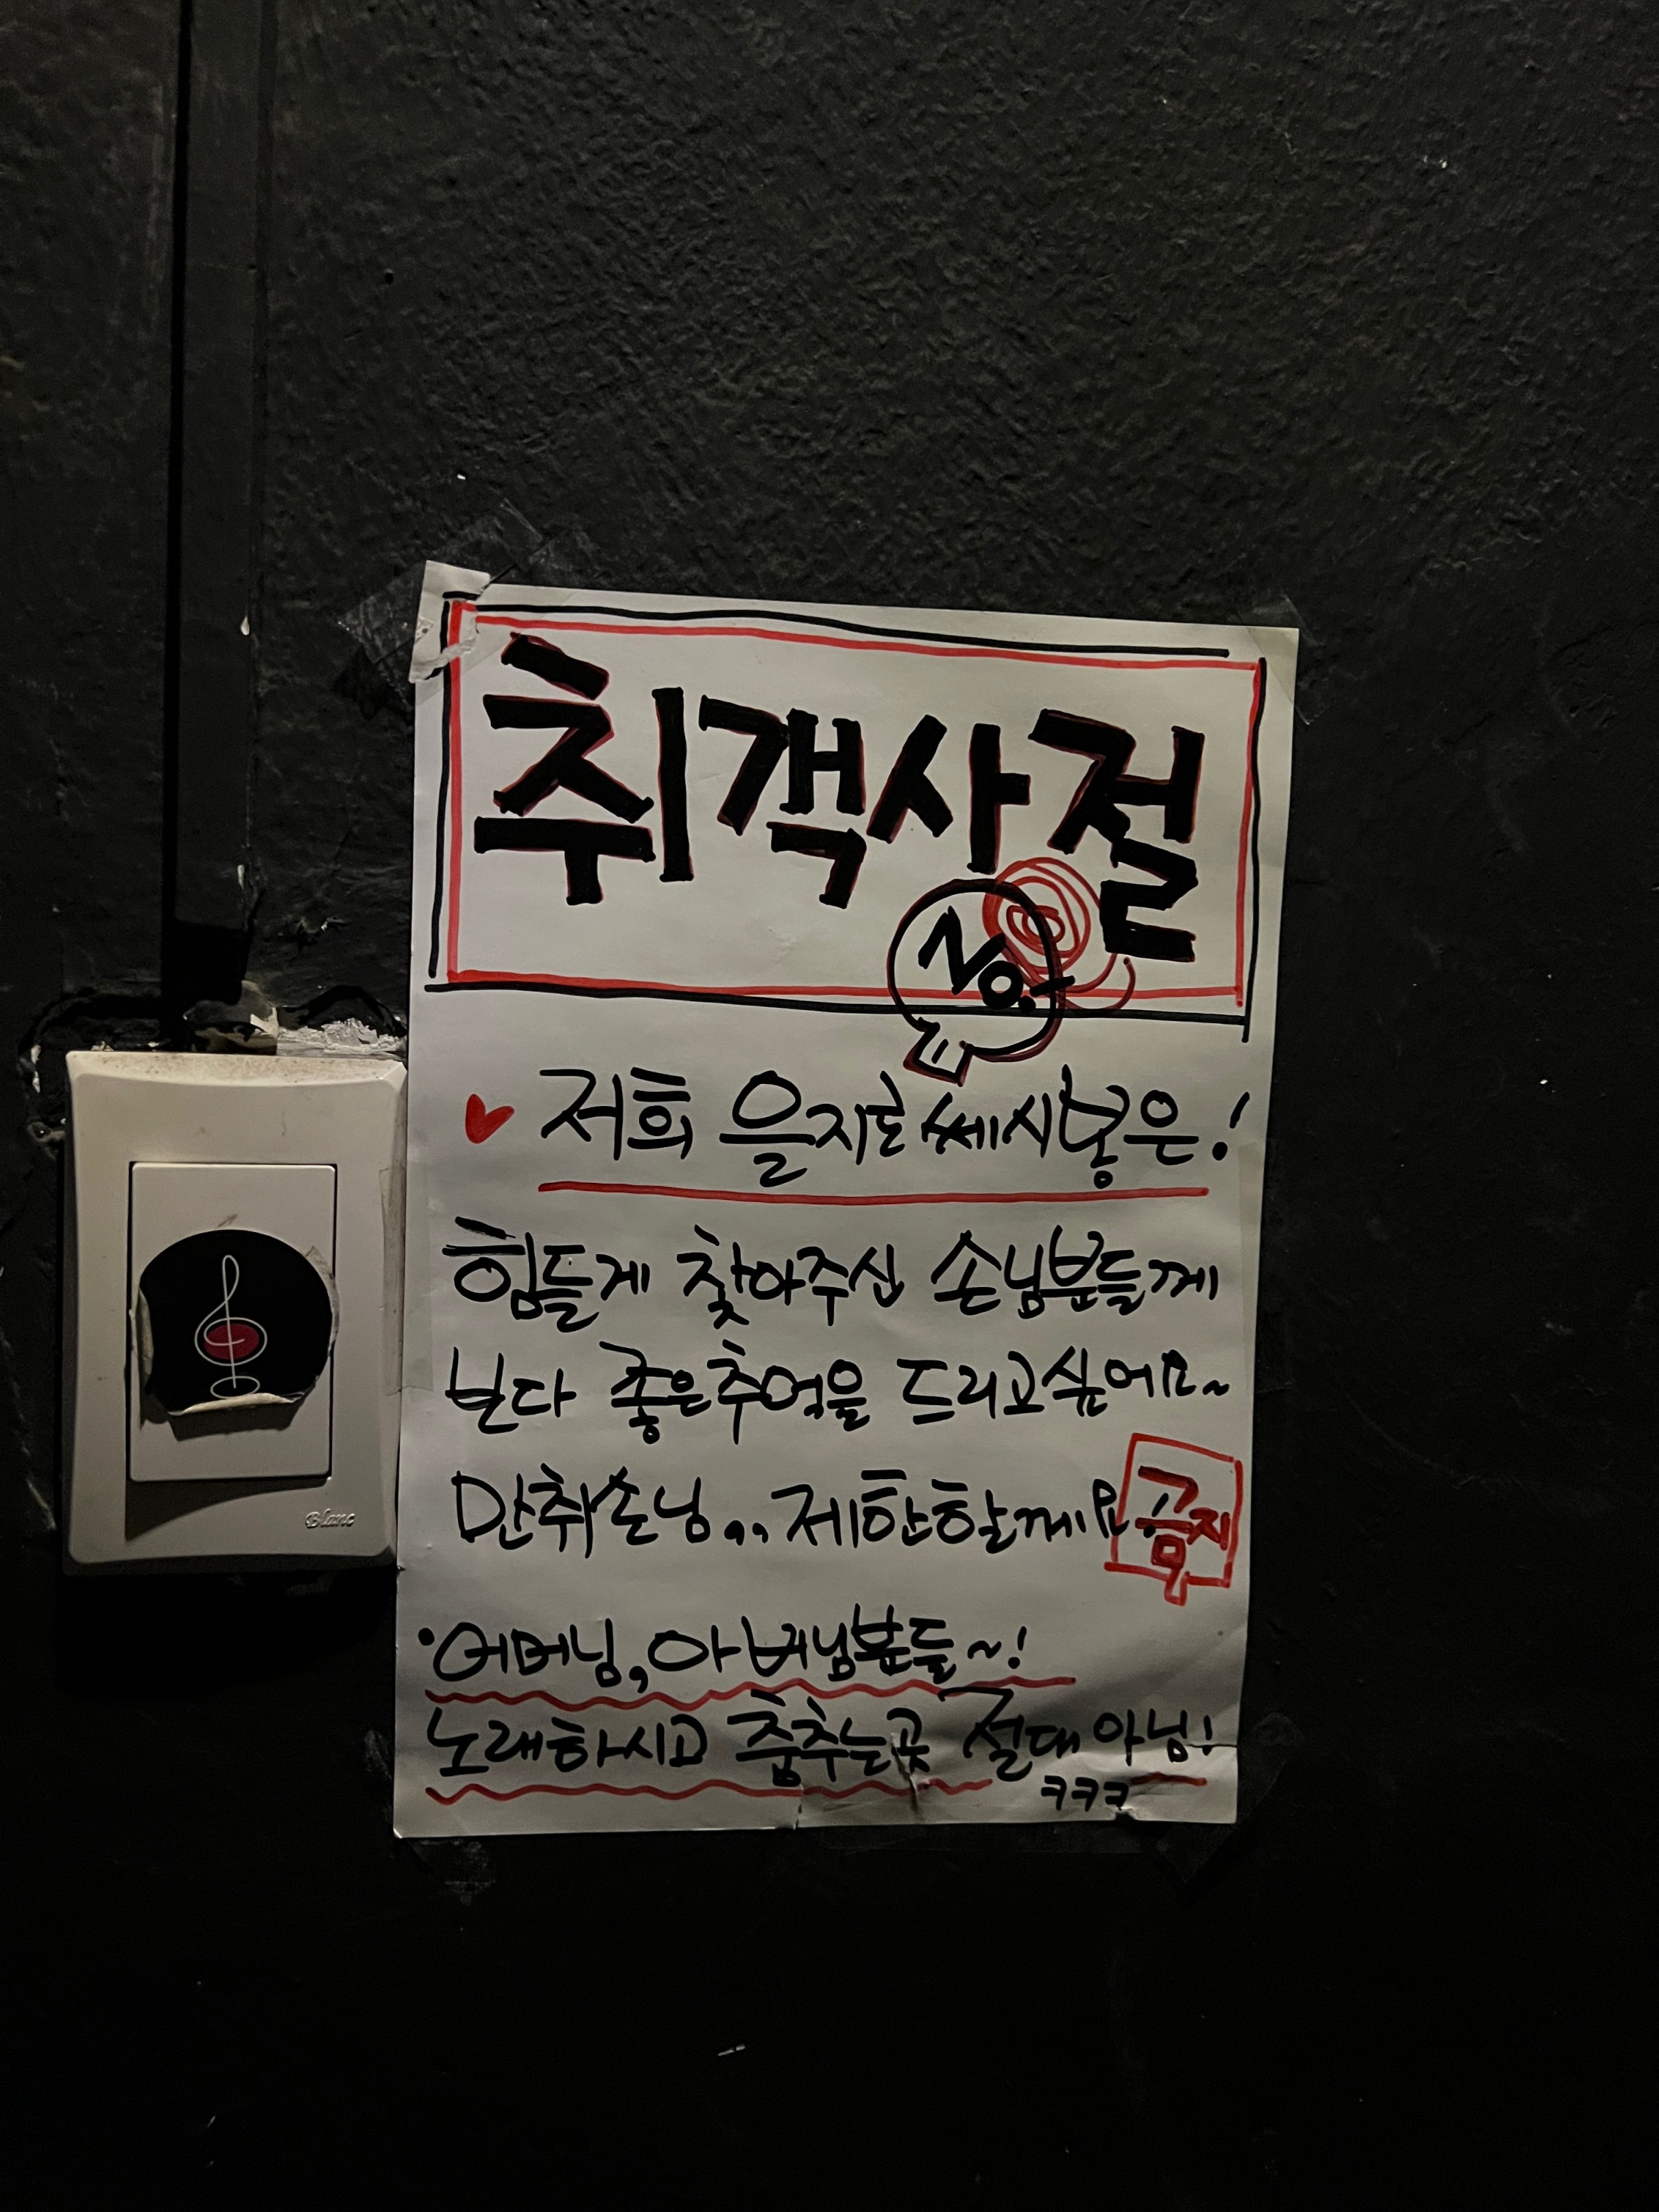 취객사절
No.
저희 을지로 쎄시봉은!
힘들게 찾아주신 손님분들께
보다 좋은추억을 드리고싶어요~
만취손님... 제한할께요 금지
·어머님, 아버님분들~!
노래하시고 춤추는곳 절대 아님!
ㅋㅋㅋ
Blanc